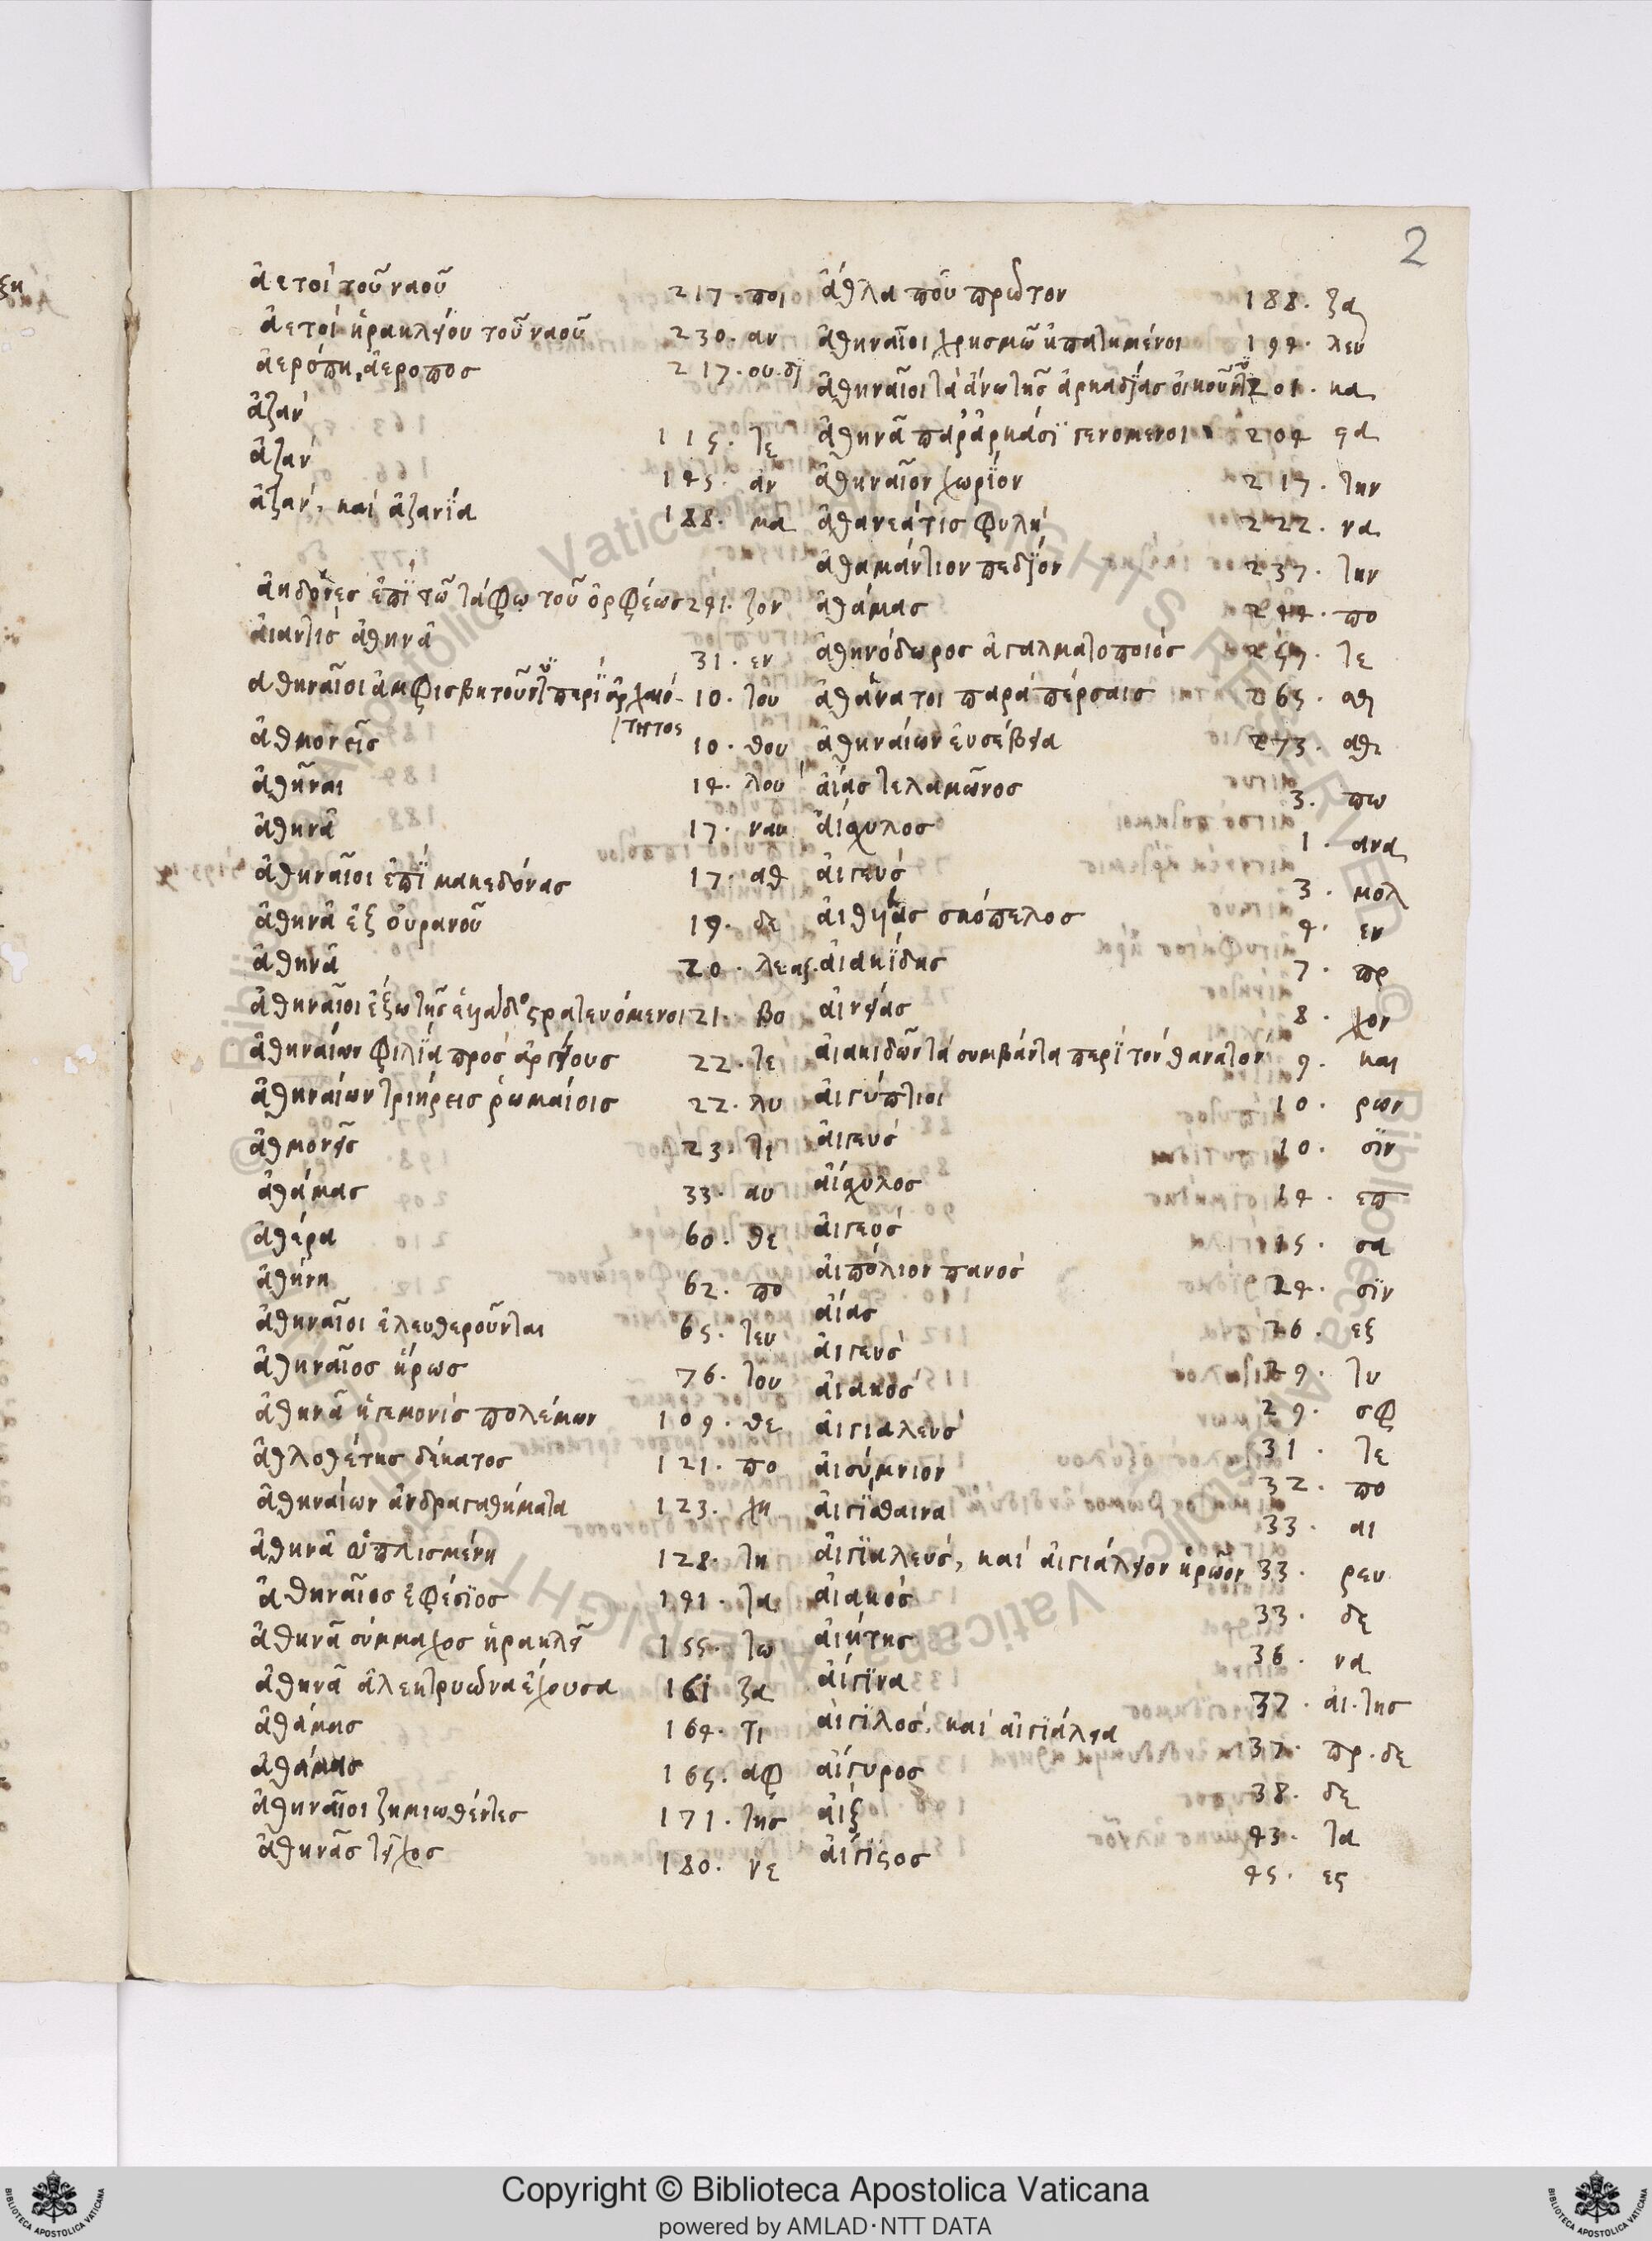 2
ἀετοὶ τοῦ ναοῦ 217. ποι
ἀετοὶ ἡρακλείου τοῦ ναοῦ 230. αν
ἀερόπη, ἀεροπος 217. ου. δι
ἀζὰν
ἀζὰν 115. τε
145. ἀν
ἀζὰν, καὶ ἀζανΐα 188. μα
ἀηδόνες ἐπῒ τῶ τάφω τοῦ ὀρφέως 291. τον
ἀιαντὶς ἀθηνᾶ 31. εν
ἀθηναῖοι ἀμφισβητοῦντ περῒ ἀρχαιό- 10. του
τητος
ἀθμονεῖς 10. θου
ἀθῆναι 14. λου
ἀθηνᾶ 17. ναυ
ἀθηναῖοι ἐπῒ μακεδόνας 17. αθ
ἀθηνᾶ ἐξ ὀυρανοῦ 19. δε
ἀθηνᾶ 20. λεας.
ἀθηναῖοι ἔξω τῆς ἑλλάδο στρατευόμενοι 21. βο
ἀθηναίων φιλΐα προς ἀργείους 22. τε
ἀθηναίων τριήρεις ῥωμαίοις 22. λυ
ἀθμονεῖς 23. τι
ἀθάμας 33. αυ
ἀθέρα 60. θε
ἀθήνη 62. πο
ἀθηναῖοι ἐλευθεροῦνται 65. τευ
ἀθηναῖος ἥρως 76. του
ἀθηνᾶ ἡγεμονὶς πολέμων 109. θε
ἀθλοθέτης δέκατος 121. πο
ἀθηναίων ἀνδραγαθήματα 123. χη
ἀθηνᾶ ὡπλισμένη 128. τη
ἀθηναῖος ἐφέσϊος 141. τα
ἀθηνᾶ σύμμαχος ἡρακλεῖ 155. τω
ἀθηνᾶ ἀλεκτρυώνα ἔχουσα 161 ζα
ἀθάμας 164. τι
ἀθάμας 165. αφ
ἀθηναῖοι ζημιωθέντες 171. τῆς
ἀθηνᾶς τεῖχος 180. νε
ἆθλα ποῦ πρῶτον 188. ζα
ἀθηναῖοι χρησμῶ ἠπατημένοι 194. λευ
ἀθηναῖοι τὰ ἄνω τῆς ἀρκαδΐας ὀικοῦντ 201. κα
ἀθηνᾶ παρ' ἀρκάσϊ γενομενοι 204 φα
ἀθηναῖον χωρΐον 217. την
ἀθανεάτις φυλὴ 222. να
ἀθαμάντιον πεδΐον 237. την
ἀθάμας 244. πο
ἀθηνόδωρος ἀγαλματοποιὸς 257. τε
ἀθάνατοι παρὰ πέρσαις 265. αθ
ἀθηναίων ἐυσέβεια 273. αθι
ἀίας τελαμῶνος 3. πω
ἀίσχυλος 1. ανα
ἀιγεὺς 3. μολ
ἀιθυίας σκόπελος 4. εν
ἀιακΐδης 7. πρ
ἀινείας 8. χον
ἀιακιδῶν τὰ συμβάντα περῒ τὸν θανατον 9. και
ἀιγύπτιοι 10. ρων
ἀιγεὺς 10. σϊν
ἀίσχυλος 14. επ
ἀιγεὺς 15. σα
ἀιπόλιον πανὸς 24. σϊν
ἀίας 26. εξ
ἀιγεὺς 29. τυ
ἀιακὸς 29. σφ
ἀιγιαλεὺς 31. τε
ἀισύμνιον 32. πο
ἀιγΐθαινα 33. αι
ἀιγΐαλεὺς, καὶ ἀιγιάλειον ἡρῶον 33. ρευ
ἀιακὸς 33. δε
ἀιήτης 36. να
ἀίγϊνα 37. ἀι. της
ἀιγΐλος, καὶ ἀιγΐάλεια 37. πρ. δε
ἀίγυρος 38. δε
ἀιξ 43. τα
ἀίγϊσος 45. ες
Copyright © Biblioteca Apostolica Vaticana
powered by AMLAD·NTT DATA